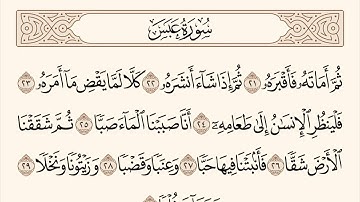 سُورَةُ عَبَسَ
ثُمَّ أَمَاتَهُۥ فَأَقْبَرَهُۥ ٢١ ثُمَّ إِذَا شَآءَ أَنشَرَهُۥ ٢٢ كَلَّا لَمَّا يَقْضِ مَآ أَمَرَهُۥ ٢٣
فَلْيَنظُرِ ٱلْإِنسَٰنُ إِلَىٰ طَعَامِهِۦٓ ٢٤ أَنَّا صَبَبْنَا ٱلْمَآءَ صَبًّا ٢٥ ثُمَّ شَقَقْنَا
ٱلْأَرْضَ شَقًّا ٢٦ فَأَنۢبَتْنَا فِيهَا حَبًّا ٢٧ وَعِنَبًا وَقَضْبًا ٢٨ وَزَيْتُونًا وَنَخْلًا ٢٩